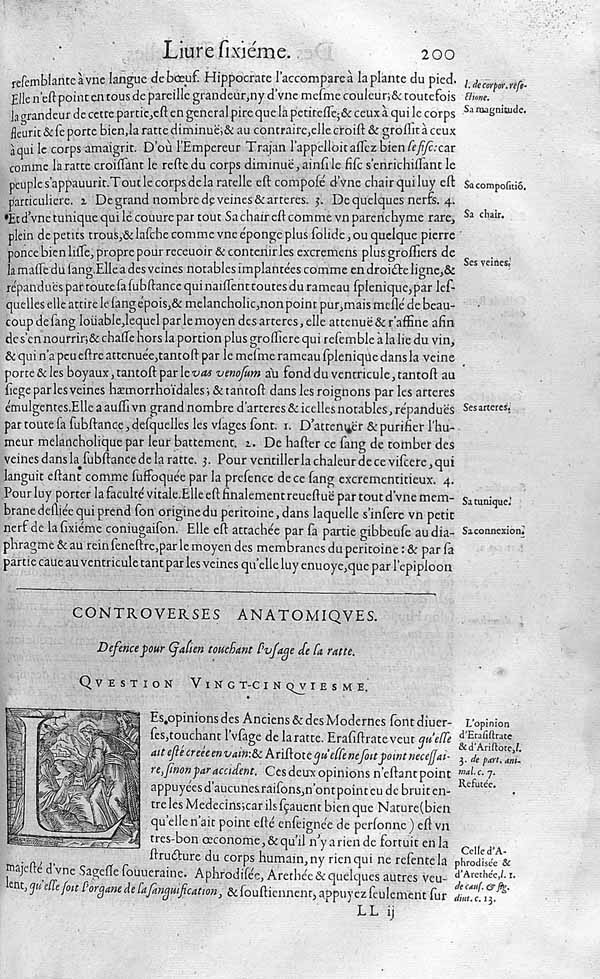 Liure ſixiéme. 200
reſemblante à vne langue de bœuf. Hippocrate l'accompare à la plante du pied.
l. de corpor. reſe-
ctione.
Elle n'eſt point en tous de pareille grandeur, ny d'vne meſme couleur; & toutefois
la grandeur de cette partie, eſt en general pire que la petiteſſe; & ceux à qui le corps
Sa magnitude.
fleurit & ſe porte bien, la ratte diminuë; & au contraire, elle croiſt & groſſit à ceux
à qui le corps amaigrit. D'où l'Empereur Trajan l'appelloit aſſez bien ſe fiſc: car
comme la ratte croiſſant le reſte du corps diminuë, ainſi le fiſc s'enrichiſſant le
peuple s'appauurit. Tout le corps de la ratelle eſt compoſé d'vne chair qui luy eſt
Sa compoſitiõ.
particuliere. 2. De grand nombre de veines & arteres. 3. De quelques nerfs. 4.
Et d'vne tunique qui le couure par tout Sa chair eſt comme vn parenchyme rare,
Sa chair.
plein de petits trous, & laſche comme vne éponge plus ſolide, ou quelque pierre
ponce bien liſſe, propre pour receuoir & contenir les excremens plus groſſiers de
la maſſe du ſang. Elle a des veines notables implantées comme en droicte ligne, &
Ses veines.
répanduës par toute ſa ſubſtance qui naiſſent toutes du rameau ſplenique, par leſ-
quelles elle attire le ſang épois, & melancholic, non point pur, mais meſlé de beau-
coup de ſang loüable, lequel par le moyen des arteres, elle attenuë & r'affine afin
de s'en nourrir; & chaſſe hors la portion plus groſſiere qui reſemble à la lie du vin,
& qui n'a peu eſtre attenuée, tantoſt par le meſme rameau ſplenique dans la veine
porte & les boyaux, tantoſt par le vas venoſum au fond du ventricule, tantoſt au
ſiege par les veines hæmorrhoïdales; & tantoſt dans les roignons par les arteres
émulgentes. Elle a auſſi vn grand nombre d'arteres & icelles notables, répanduës
Ses arteres.
par toute ſa ſubſtance, deſquelles les vſages ſont. 1. D'attenuer & purifier l'hu-
meur melancholique par leur battement. 2. De haſter ce ſang de tomber des
veines dans la ſubſtance de la ratte. 3. Pour ventiller la chaleur de ce viſcere, qui
languit eſtant comme ſuffoquée par la preſence de ce ſang excrementitieux. 4.
Pour luy porter la faculté vitale. Elle eſt finalement reueſtuë par tout d'vne mem-
brane deſliée qui prend ſon origine du peritoine, dans laquelle s'inſere vn petit
Sa tunique.
nerf de la ſixiéme coniugaiſon. Elle eſt attachée par ſa partie gibbeuſe au dia-
Sa connexion.
phragme & au rein ſeneſtre, par le moyen des membranes du peritoine: & par ſa
partie caue au ventricule tant par les veines qu'elle luy enuoye, que par l'epiploon
CONTROVERSES ANATOMIQVES.
Defence pour Galien touchant l'vſage de la ratte.
QVESTION VINGT-CINQVIESME.
LEs opinions des Anciens & des Modernes ſont diuer-
ſes, touchant l'vſage de la ratte. Eraſiſtrate veut qu'elle
ait eſté creée en vain: & Ariſtote qu'elle ne ſoit point neceſſai-
re, ſinon par accident. Ces deux opinions n'eſtant point
appuyées d'aucunes raiſons, n'ont point eu de bruit en-
tre les Medecins; car ils ſçauent bien que Nature (bien
qu'elle n'ait point eſté enſeignée de perſonne) eſt vn
tres-bon œconome, & qu'il n'y a rien de fortuit en la
ſtructure du corps humain, ny rien qui ne reſente la
majeſté d'vne Sageſſe ſouueraine. Aphrodiſée, Arethée & quelques autres veu-
lent, qu'elle ſoit l'organe de la ſanguification, & ſouſtiennent, appuyez ſeulement ſur
L'opinion
d'Eraſiſtrate
& d'Ariſtote, l.
3. de part. ani-
mal. c. 7.
Refutée.
Celle d'A-
phrodiſée &
d'Arethée, l. 1.
de cauſ. & ſig.
diut. c. 13.
LL ij